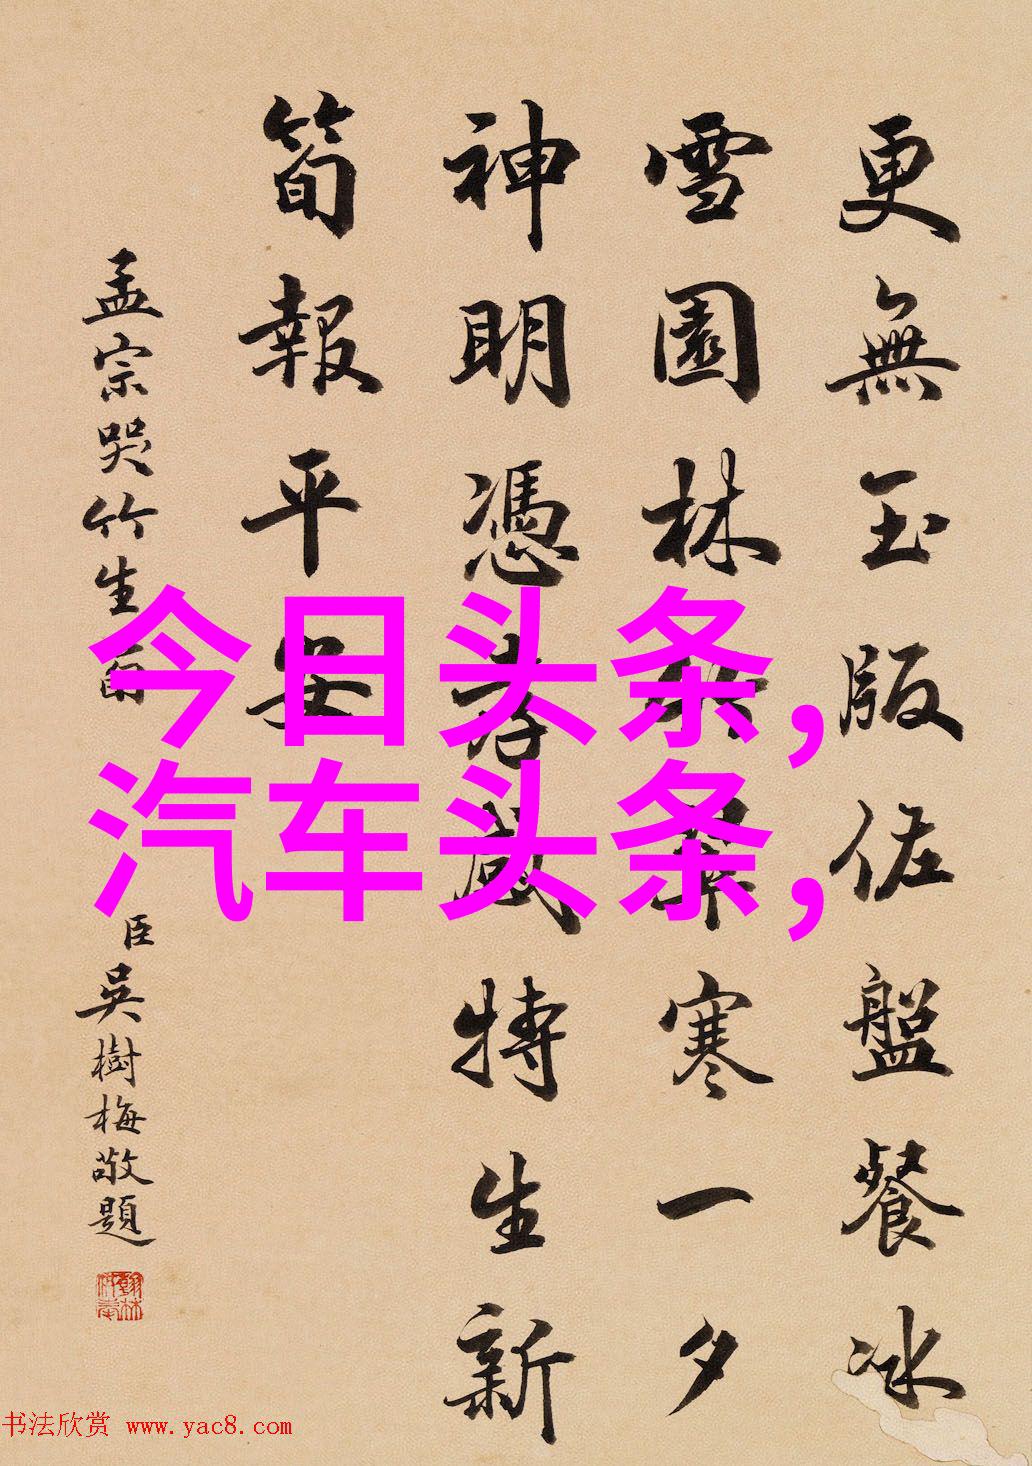 更無玉版佐盤餐冰
雪園林寒一夕
神明憑孝感特生新
筍報平安
孟宗哭竹生筍
臣吳樹梅敬題
今日头条,
汽车头条,
书法欣赏 www.yac8.com